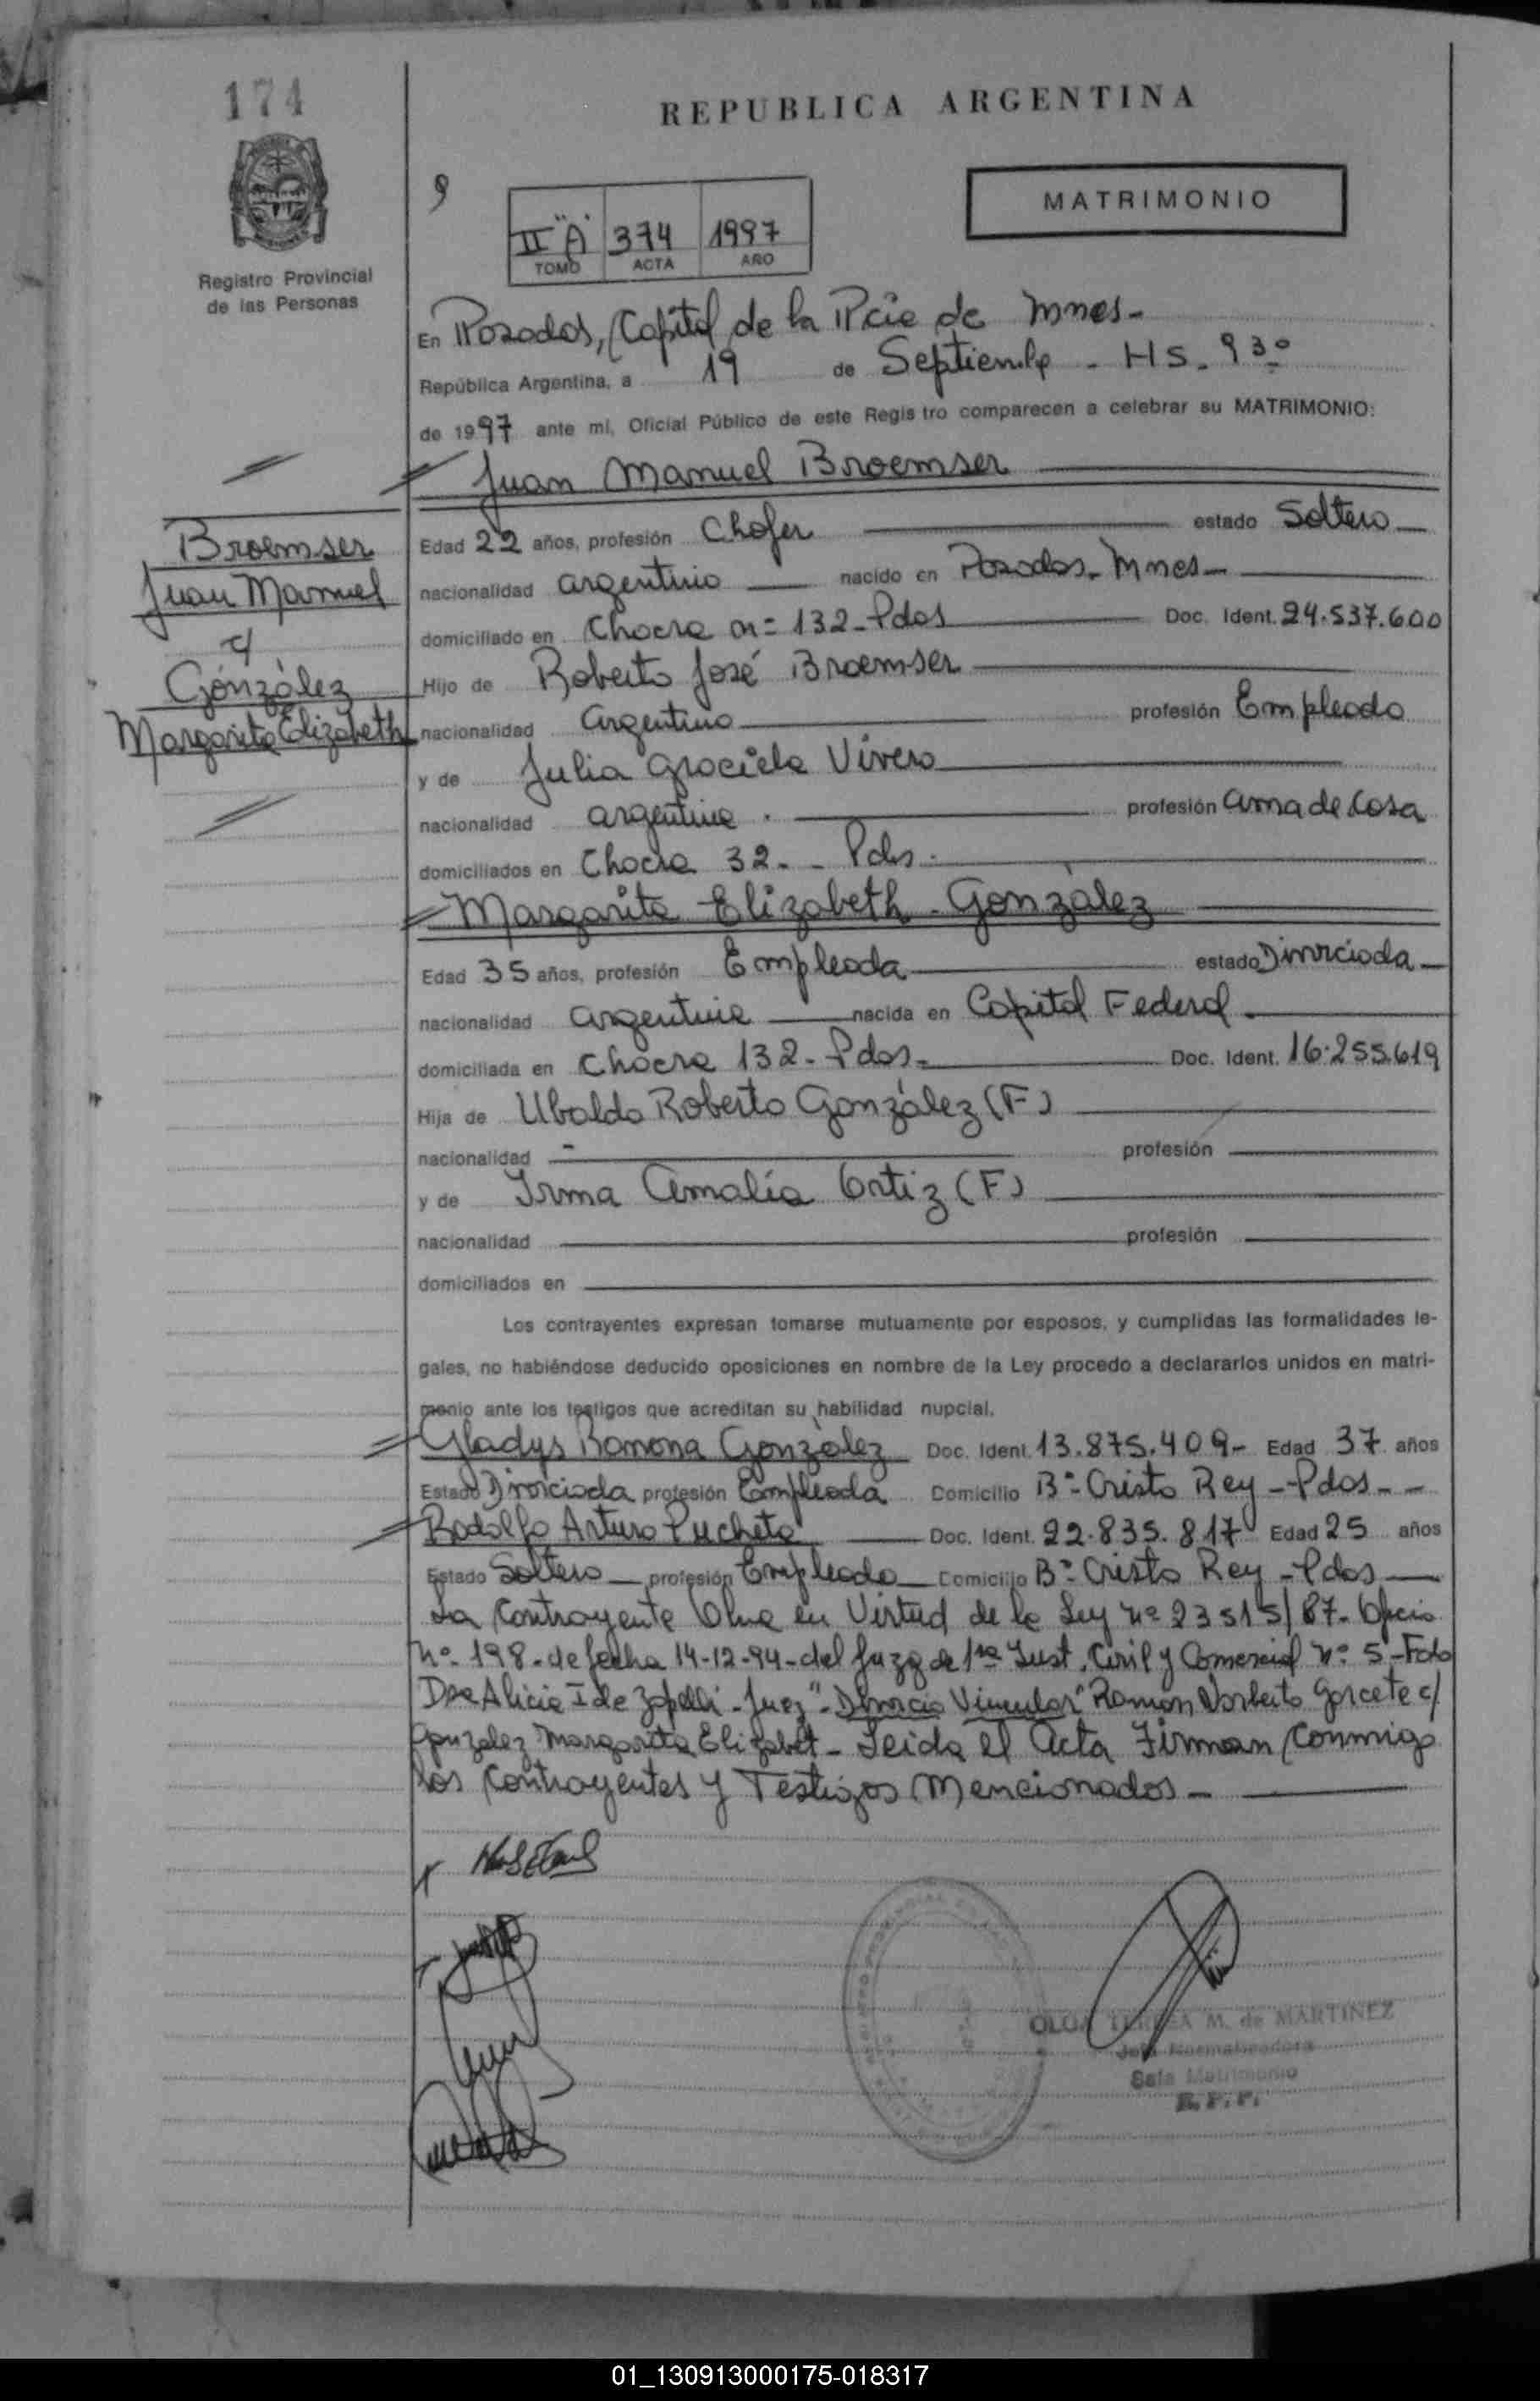 174
REPUBLICA ARGENTINA
MATRIMONIO
II "A" 374 1997
TOMO ACTA AÑO
Registro Provincial
de las Personas
En Posadas, Capital de la Pcia de Mnes-
República Argentina, a 19 de Septiembre - Hs. 9 30
de 1997 ante mí, Oficial Público de este Registro comparecen a celebrar su MATRIMONIO:
Juan Manuel Broemser
Broemser
Juan Manuel
c/
González
Margarita Elizabeth
Edad 22 años, profesión Chofer estado Soltero
nacionalidad argentino nacido en Posadas-Mnes-
domiciliado en Chacra n= 132-Pdas Doc. Ident. 24.537.600
Hijo de Roberto José Broemser
nacionalidad argentino profesión Empleado
y de Julia Graciela Vivero
nacionalidad argentina. profesión ama de Casa
domiciliados en Chacra 32. - Pdas.
Margarita Elizabeth González
Edad 35 años, profesión Empleada estado Divorciada
nacionalidad argentina nacida en Capital Federal.
domiciliada en Chacra 132- Pdas- Doc. Ident. 16.255.619
Hija de Ubaldo Roberto González (F)
nacionalidad profesión
y de Irma Amalia Ortiz (F)
nacionalidad profesión
domiciliados en
Los contrayentes expresan tomarse mutuamente por esposos, y cumplidas las formalidades le-
gales, no habiéndose deducido oposiciones en nombre de la Ley procedo a declararlos unidos en matri-
monio ante los testigos que acreditan su habilidad nupcial.
Gladys Ramona González Doc. Ident. 13.875.409- Edad 37 años
Estado Divorciada profesión Empleada Domicilio B° Cristo Rey -Pdas--
Rodolfo Arturo Pucheta Doc. Ident. 22.835.817 Edad 25 años
Estado Soltero profesión Empleado Domicilio B° Cristo Rey -Pdas
La Contrayente en Virtud de la Ley n° 23515/87- Oficio
N°- 198-de fecha 14-12-94-del Juzg de 1ra Inst. Civil y Comercial n° 5-Fdo
Dra Alicia I de -Juez"-Divorcio Vincular" Ramon Norberto Garcete c/
Gonzalez Margarita Elizabet- Leida el Acta Firman Conmigo
los Contrayentes y Testigos Mencionados-
OLGA TERESA M. de MARTINEZ
Sala Matrimonio
R. P. P.
01_130913000175-018317